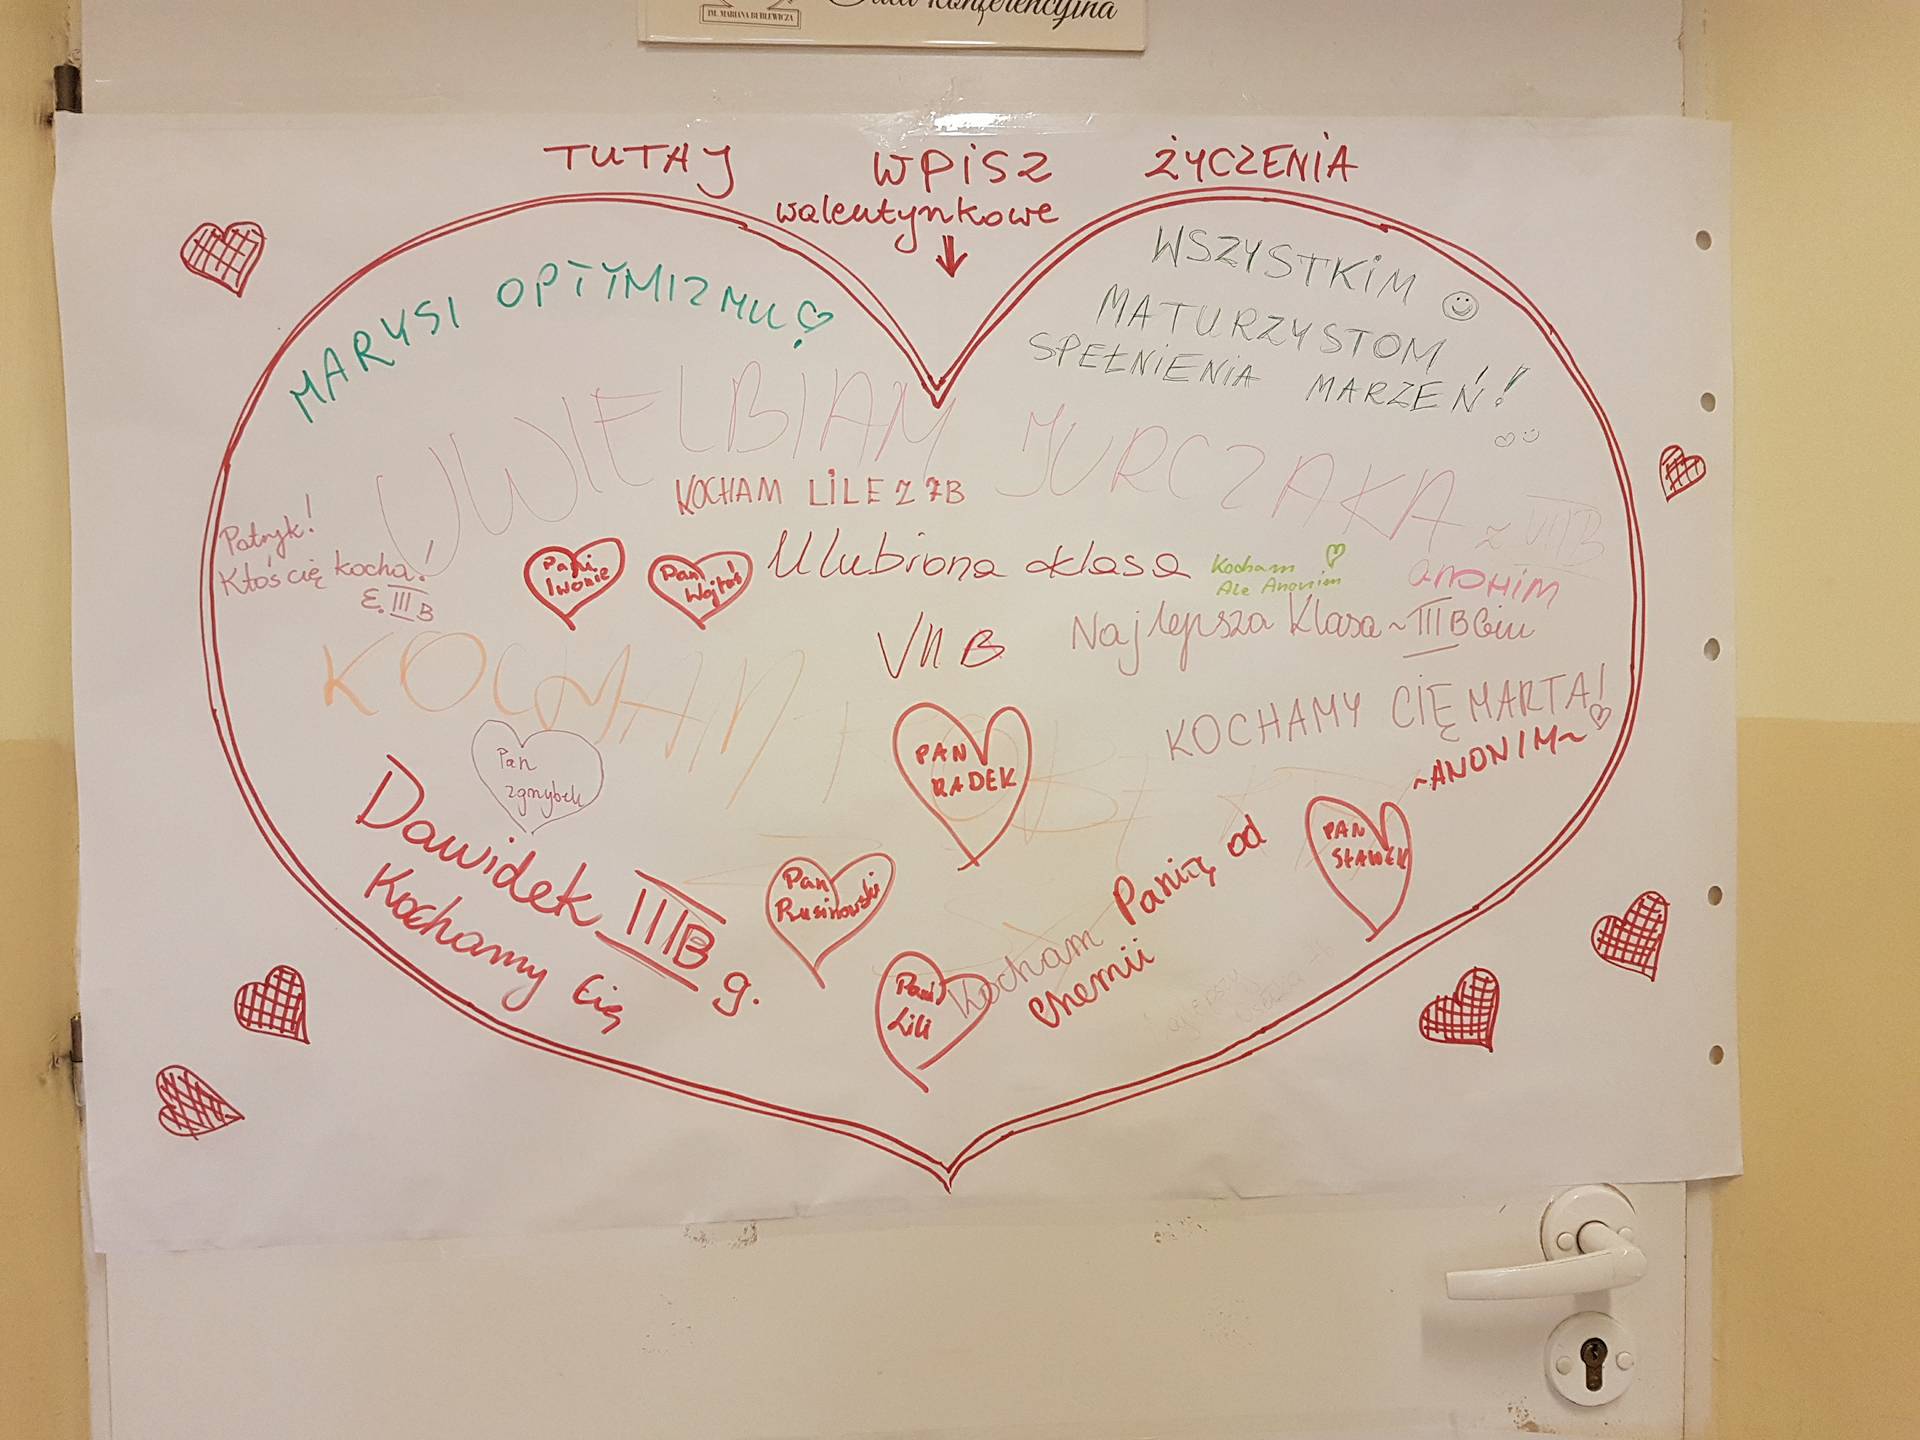 IM. MARIANA BUBLEWICZA
Sala konferencyjna
TUTAJ WPISZ ŻYCZENIA
walentynkowe
MARYSI OPTYMIZMU
WSZYSTKIM
MATURZYSTOM
SPEŁNIENIA MARZEŃ!
UWIELBIAM JURCZAKA z VIIB
KOCHAM LILE Z 7B
Patryk!
Ktoś cię kocha!
IIIB
Pani
Iwonie
Pan
Ulubiona klasa
VII B
Kocham
Ale Anonim
ANOHIM
Najlepsza Klasa ~ IIIB Gim
KOCHAM
KOCHAMY CIĘ MARTA!
~ANONIM~
Pan
zgmybek
PAN
RADEK
PAN
SŁAWEK
Dawidek IIIB g.
Kochamy Cię
Pan
Rusinowski
Pani
Lili
Kocham Panią od
chemii